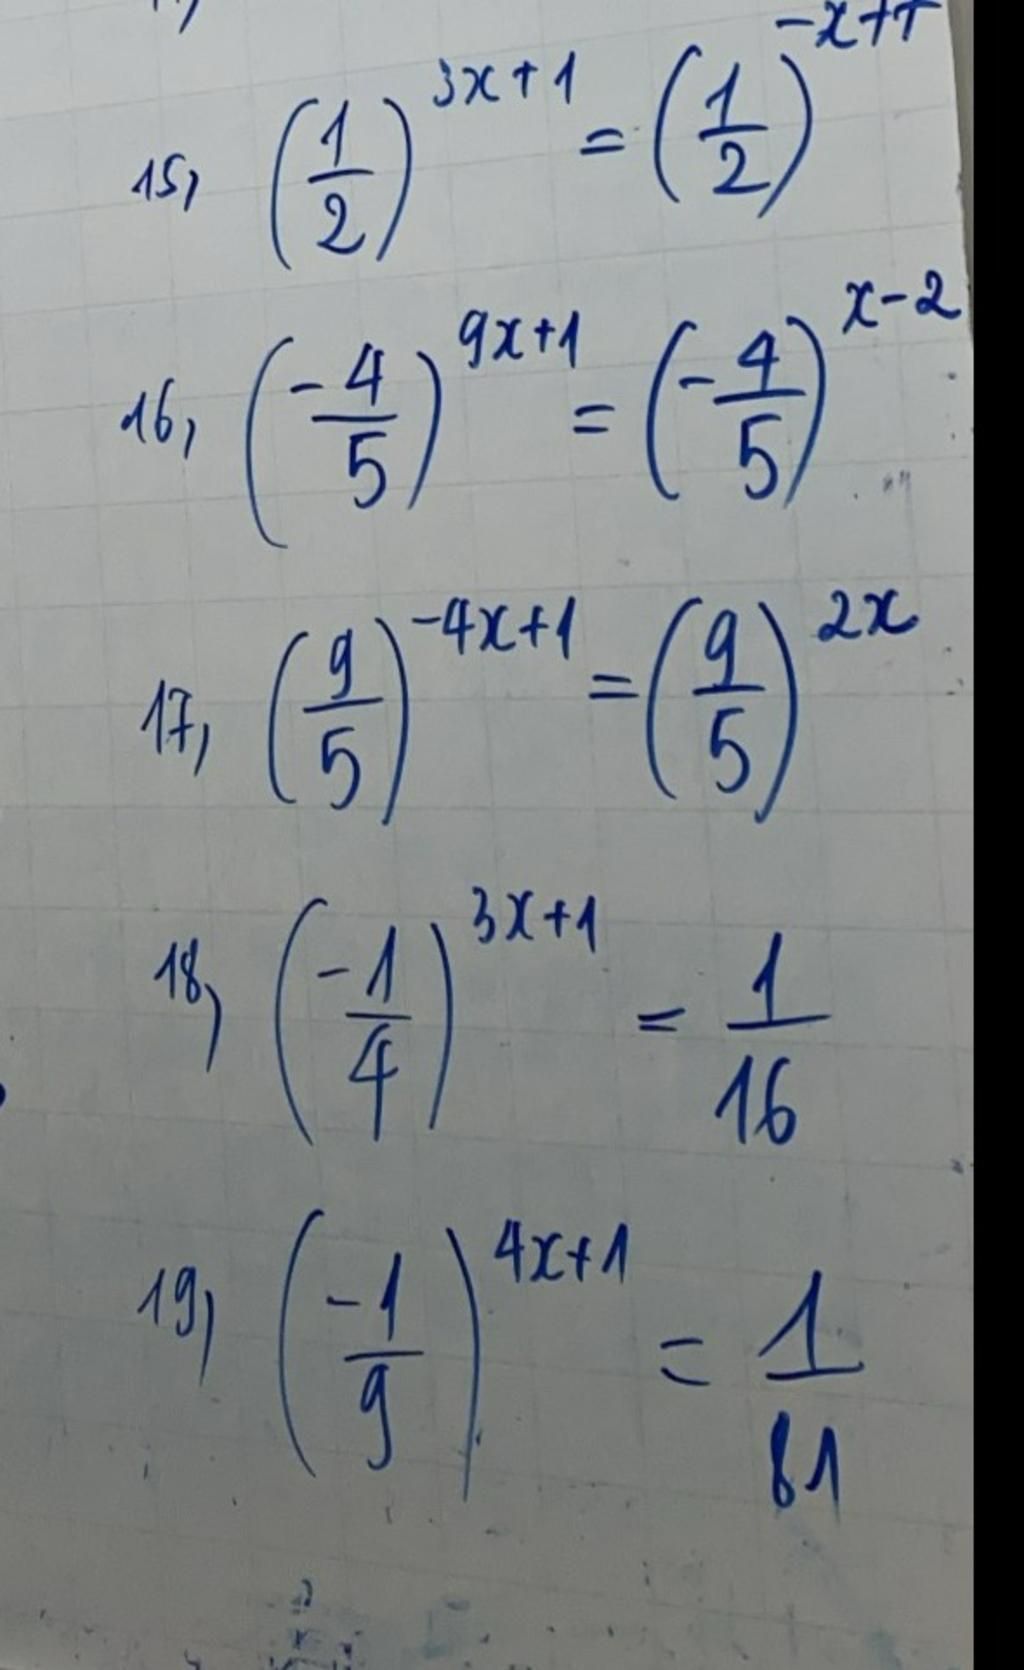 15, (1/2)^{3x+1} = (1/2)
16, (-4/5)^{9x+1} = (-4/5)^{x-2}
17, (9/5)^{-4x+1} = (9/5)^{2x}
18, (-1/4)^{3x+1} = 1/16
19, (-1/9)^{4x+1} = 1/81